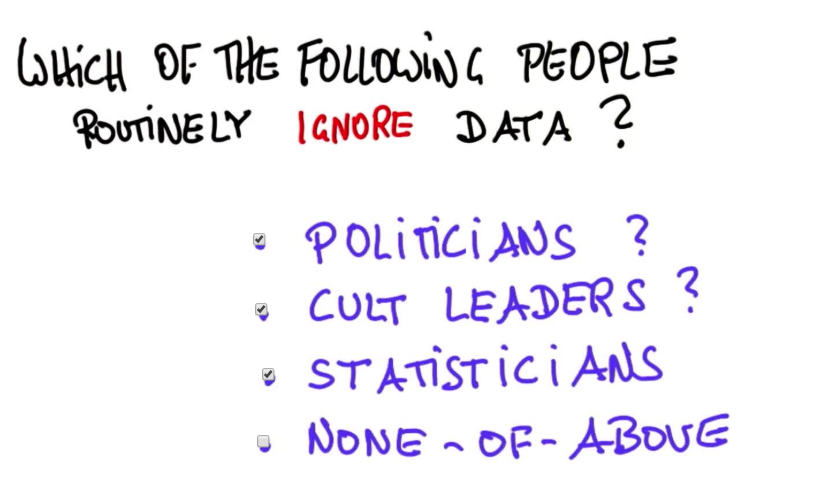 WHiCH OF THE FOLLOWiNG PEOPLE
ROUTiNELY IGNORE DATA ?
POLiTiCiANS ?
CULT LEADERS ?
STATiSTICiANS
NONE-OF-ABOVE